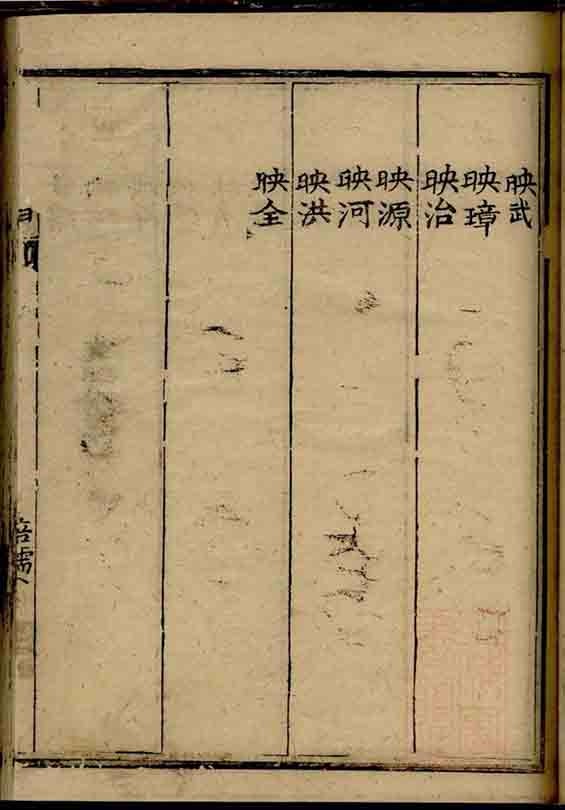 映武
映璋
映治
映源
映河
映洪
映全